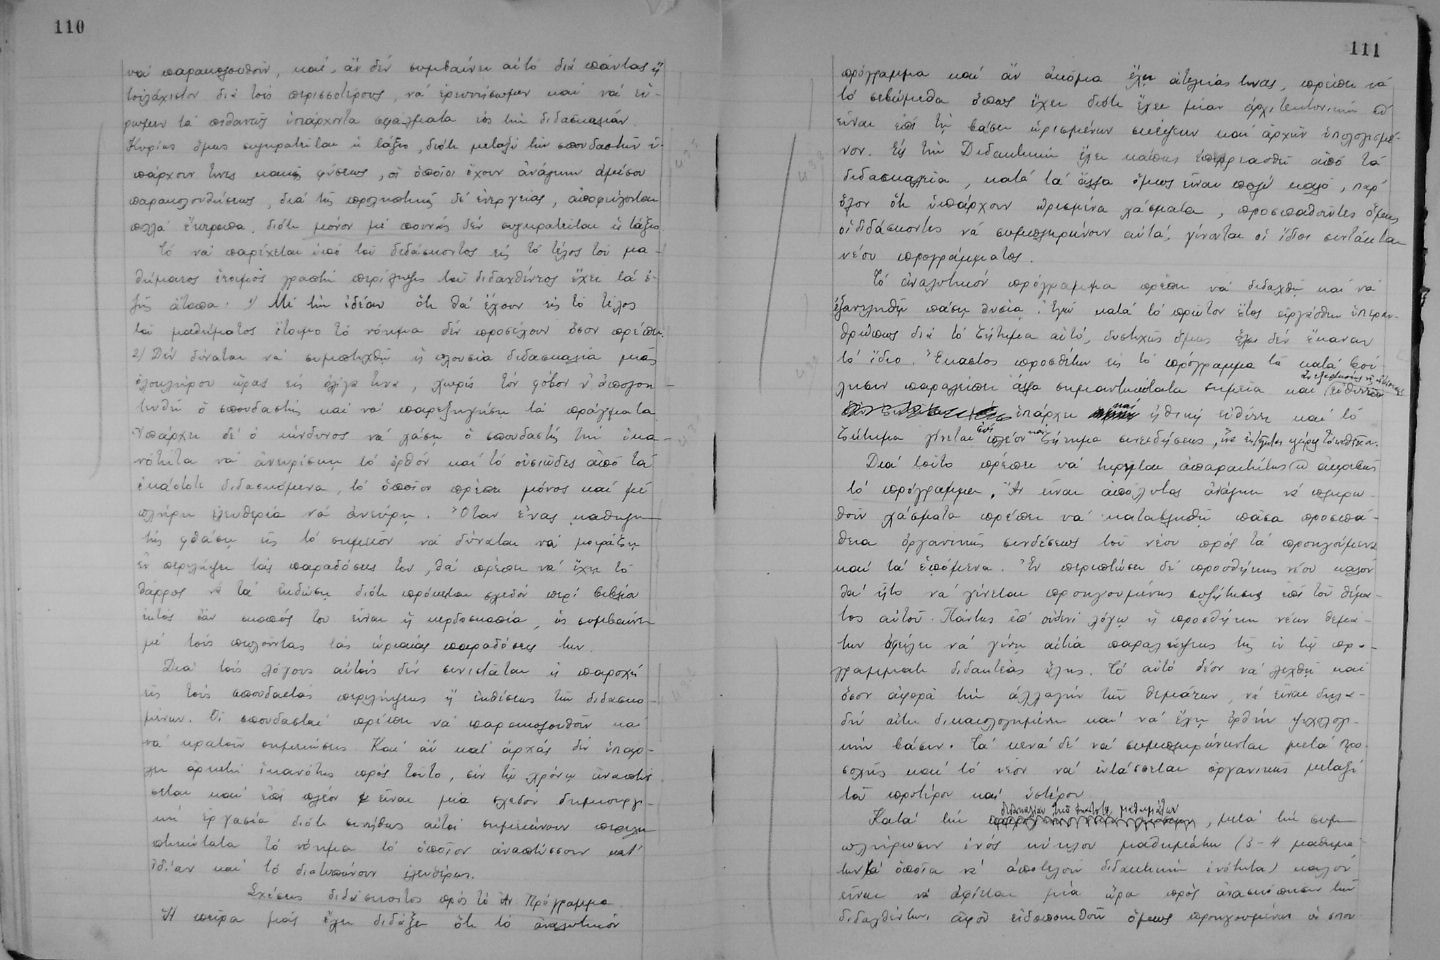 110
νά παρακολουθοῦν, καί, ἄν δέν συμβαίνει αὐτό διά πάντας ἤ
τοὐλάχιστον διά τούς περισσοτέρους, νά ἐρευνήσωμεν καί νά εὕ-
ρωμεν τά πιθανῶς ὑπάρχοντα σφάλματα εἰς τήν διδασκαλίαν.
Κυρίως ὅμως συγκρατεῖται ἡ τάξις, διότι μεταξύ τῶν σπουδαστῶν ὑ-
πάρχουν τινες κακῆς φύσεως, οἱ ὁποῖοι ἔχουν ἀνάγκην ἀμέσου
παρακολουθήσεως, διά τῆς προληπτικῆς δέ ἐνεργείας, ἀποφεύγονται
πολλά ἔκτροπα, διότι μόνον μέ ποινάς δέν συγκρατεῖται ἡ τάξις.
Τό νά παρέχεται ὑπό τοῦ διδάσκοντος εἰς τό τέλος τοῦ μα-
θήματος ἑτοίμως γραπτή περίληψις τοῦ διδαχθέντος ἔχει τά ἑ-
ξῆς ἄτοπα: 1) Μέ τήν ἰδέαν ὅτι θά ἔχουν εἰς τό τέλος
τοῦ μαθήματος ἕτοιμο τό νόημα δέν προσέχουν ὅσον πρέπει.
2) Δέν δύναται νά συμπτυχθῇ ἡ πλουσία διδασκαλία μιᾶς
ὁλοκλήρου ὥρας εἰς ὀλίγα τινα, χωρίς τόν φόβον ν' ἀποπλα-
νηθῇ ὁ σπουδαστής καί νά παρεξηγήσῃ τά πράγματα
Ὑπάρχει δέ ὁ κίνδυνος νά χάσῃ ὁ σπουδαστής τήν ἱκα-
νότητα νά ἀνευρίσκῃ τό ὀρθόν καί τό οὐσιῶδες ἀπό τά
ἑκάστοτε διδασκόμενα, τό ὁποῖον πρέπει μόνος καί μέ
πλήρη ἐλευθερία νά ἀνεύρῃ. Ὅταν ἕνας καθηγη-
τής φθάσῃ εἰς τό σημεῖον νά δύναται νά μοιράζῃ
ἐν περιλήψει τάς παραδόσεις του, θά πρέπει νά ἔχει τό
θάρρος νά τά ἐκδώσῃ διότι πρόκειται σχεδόν περί βιβλίου
ἐκτός ἐάν σκοπός του εἶναι ἡ κερδοσκοπία, ὡς συμβαίνει
μέ τούς πωλοῦντας τάς ὡριαίας παραδόσεις των.
Διά τούς λόγους αὐτούς δέν συνιστᾶται ἡ παροχή
εἰς τούς σπουδαστάς περιλήψεως ἤ ἐκθέσεως τῶν διδασκο-
μένων. Οἱ σπουδασταί πρέπει νά παρακολουθοῦν καί
νά κρατοῦν σημειώσεις. Καί ἄν κατ' ἀρχάς δέν ὑπάρ-
χει ἀρκετή ἱκανότης πρός τοῦτο, σύν τῷ χρόνῳ ἀναπτύσ-
σεται καί ἐπί πλέον εἶναι μία σχεδόν δημιουργι-
κή ἐργασία διότι συνήθως αὐτοί σημειώνουν περιλη-
πτικώτατα τό νόημα τό ὁποῖον ἀναπτύσσουν κατ'
ἰδίαν καί τό διατυπώνουν ἐλευθέρως.
Σχέσις διδάσκοντος πρός τό Ἀν. Πρόγραμμα.
Ἡ πεῖρα μᾶς ἔχει διδάξει ὅτι τό ἀναλυτικόν
111
πρόγραμμα καί ἄν ἀκόμα ἔχει ἀτελείας τινας, πρέπει νά
τό σεβώμεθα ὅπως ἔχει διότι ἔχει μίαν ἀρχιτεκτονικήν καί
εἶναι ἐπί τῇ βάσει ὡρισμένων σκέψεων καί ἀρχῶν ὑπολογισμέ-
νον. Εἰς τήν Διδακτικήν ἔχει κάπως ἐπηρεασθῆ ἀπό τά
διδασκαλεῖα, κατά τά ἄλλα ὅμως εἶναι πολύ καλό, παρ'
ὅλον ὅτι ὑπάρχουν ὡρισμένα χάσματα, προσπαθοῦντες ὅμως
οἱ διδάσκοντες νά συμπληρώνουν αὐτά, γίνονται οἱ ἴδιοι συντάκται
νέου προγράμματος.
Τό ἀναλυτικόν πρόγραμμα πρέπει νά διδαχθῇ καί νά
ἐξαντληθῇ πάσῃ θυσίᾳ. Ἐγώ κατά τό πρῶτον ἔτος εἰργάσθην ὑπεραν-
θρώπως διά τό ζήτημα αὐτό, δυστυχῶς ὅμως ἄλλοι δέν ἔκαναν
τό ἴδιο. Ἕκαστος προσθέτων εἰς τό πρόγραμμα τά κατά βού-
λησιν παραλείπει ἄλλα σημαντικώτατα σημεῖα καί
ὑπάρχει καί ἠθική εὐθύνη καί τό
ζήτημα γίνεται ἐπί πλέον καί ζήτημα συνειδήσεως,
Διά τοῦτο πρέπει νά τηρῆται ἀπαραιτήτως ἀκριβῶς
τό πρόγραμμα. Ἄν εἶναι ἀπόλυτος ἀνάγκη νά πληρω-
θοῦν χάσματα πρέπει νά καταβληθῇ πᾶσα προσπά-
θεια ὀργανικῆς συνδέσεως τοῦ νέου πρός τά προηγούμενα
καί τά ἑπόμενα. Ἐν περιπτώσει δέ προσθήκης νέου καλόν
θά ἦτο νά γίνεται προηγουμένως συζήτησις ἐπί τοῦ θέμα-
τος αὐτοῦ. Πάντως ἐπ' οὐδενί λόγῳ ἡ προσθήκη νέων θεμά-
των ὀφείλει νά γίνῃ αἰτία παραλείψεως τῆς ἐν τῷ προ-
γράμματι διδακτέας ὕλης. Τό αὐτό δέον νά λεχθῇ καί
ὅσον ἀφορᾷ τήν ἀλλαγήν τῶν θεμάτων, νά εἶναι δηλα-
δή αὕτη δικαιολογημένη καί νά ἔχῃ ὀρθήν ψυχολογι-
κήν βάσιν. Τά κενά δέ νά συμπληρώνωνται μετά προ-
σοχῆς καί τό νέον νά ἐντάσσεται ὀργανικῶς μεταξύ
τοῦ προτέρου καί ὑστέρου.
Κατά τήν διδασκαλίαν τῶν μαθημάτων, μετά τήν συμ-
πλήρωσιν ἑνός κύκλου μαθημάτων (3-4 μαθημά-
των τά ὁποῖα νά ἀποτελοῦν διδακτικήν ἑνότητα) καλόν
εἶναι νά ἀφίεται μία ὥρα πρός ἀνασκόπησιν τῶν
διδαχθέντων ἀφοῦ εἰδοποιηθοῦν ὅμως προηγουμένως οἱ σπου